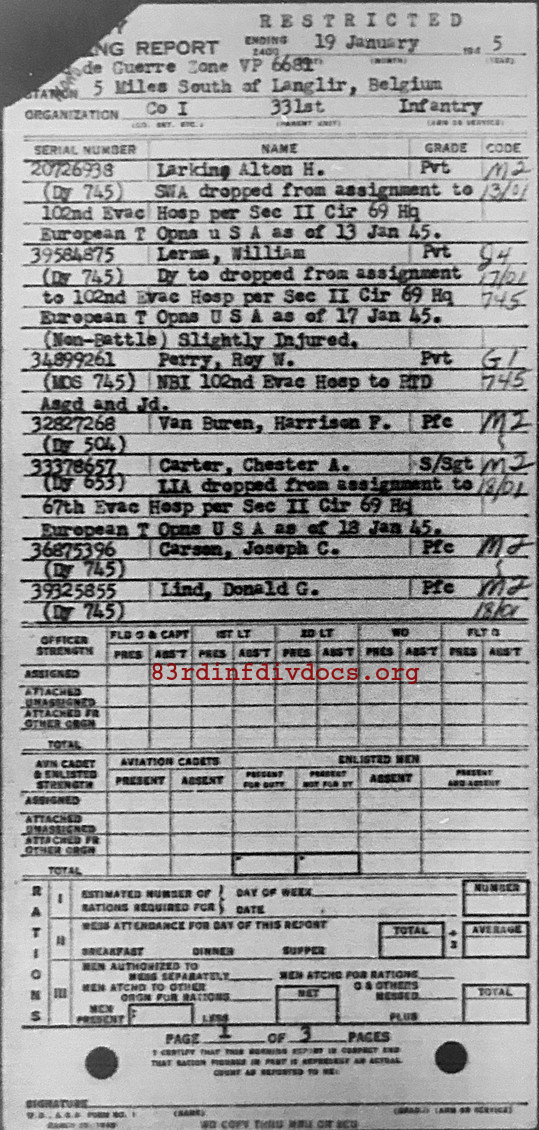 RESTRICTED
ING REPORT ENDING 2400 19 January 194 5
de Guerre Zone VP 6681
STATION 5 Miles South of Langlir, Belgium
ORGANIZATION Co I 331st Infantry
(CO. DET. ETC.) (PARENT UNIT) (ARM OR SERVICE)
SERIAL NUMBER NAME GRADE CODE
20726938 Larking Alton H. Pvt M2
(Dy 745) SWA dropped from assignment to 13/01
102nd Evac Hosp per Sec II Cir 69 Hq
European T Opns u S A as of 13 Jan 45.
39584875 Lerma, William Pvt
(Dy 745) Dy to dropped from assignment 17/01
to 102nd Evac Hosp per Sec II Cir 69 Hq 745
European T Opns U S A as of 17 Jan 45.
(Non-Battle) Slightly Injured.
34899261 Perry, Roy W. Pvt G1
(MOS 745) NBI 102nd Evac Hosp to RTD 745
Asgd and Jd.
32827268 Van Buren, Harrison F. Pfc M2
(Dy 504)
33378657 Carter, Chester A. S/Sgt M2
(Dy 653) LIA dropped from assignment to 18/01
67th Evac Hosp per Sec II Cir 69 Hq
European T Opns U S A as of 18 Jan 45.
36875396 Carsen, Joseph C. Pfc M2
(Dy 745)
39325855 Lind, Donald G. Pfc M2
(Dy 745) 18/01
OFFICER STRENGTH FLD O & CAPT 1ST LT 2D LT WO FLT O
PRES ABS'T PRES ABS'T PRES ABS'T PRES ABS'T PRES ABS'T
83rdinfdivdocs.org
ASSIGNED
ATTACHED UNASSIGNED
ATTACHED FR OTHER ORGN
TOTAL
AVN CADET & ENLISTED STRENGTH AVIATION CADETS ENLISTED MEN
PRESENT ABSENT PRESENT FOR DUTY PRESENT NOT FOR DY ABSENT PRESENT AND ABSENT
ASSIGNED
ATTACHED UNASSIGNED
ATTACHED FR OTHER ORGN
TOTAL
RATIONS
I ESTIMATED NUMBER OF RATIONS REQUIRED FOR DAY OF WEEK DATE NUMBER
II MESS ATTENDANCE FOR DAY OF THIS REPORT TOTAL ÷ 3 AVERAGE
BREAKFAST DINNER SUPPER
III MEN AUTHORIZED TO MESS SEPARATELY MEN ATCHD FOR RATIONS
MEN ATCHD TO OTHER ORGN FOR RATIONS NET O & OTHERS MESSED TOTAL
MEN PRESENT LESS PLUS
PAGE 1 OF 3 PAGES
I CERTIFY THAT THIS MORNING REPORT IS CORRECT AND
THAT RATION FIGURES IN PART III REPRESENT AN ACTUAL
COUNT AS REPORTED TO ME:
SIGNATURE
W.D., A.G.O. FORM NO. 1 (NAME) (GRADE) (ARM OR SERVICE)